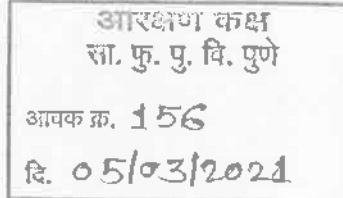 आरक्षण कक्ष
सा. फु. पु. वि. पुणे
आवक क्र. 156
दि. 05/03/2021